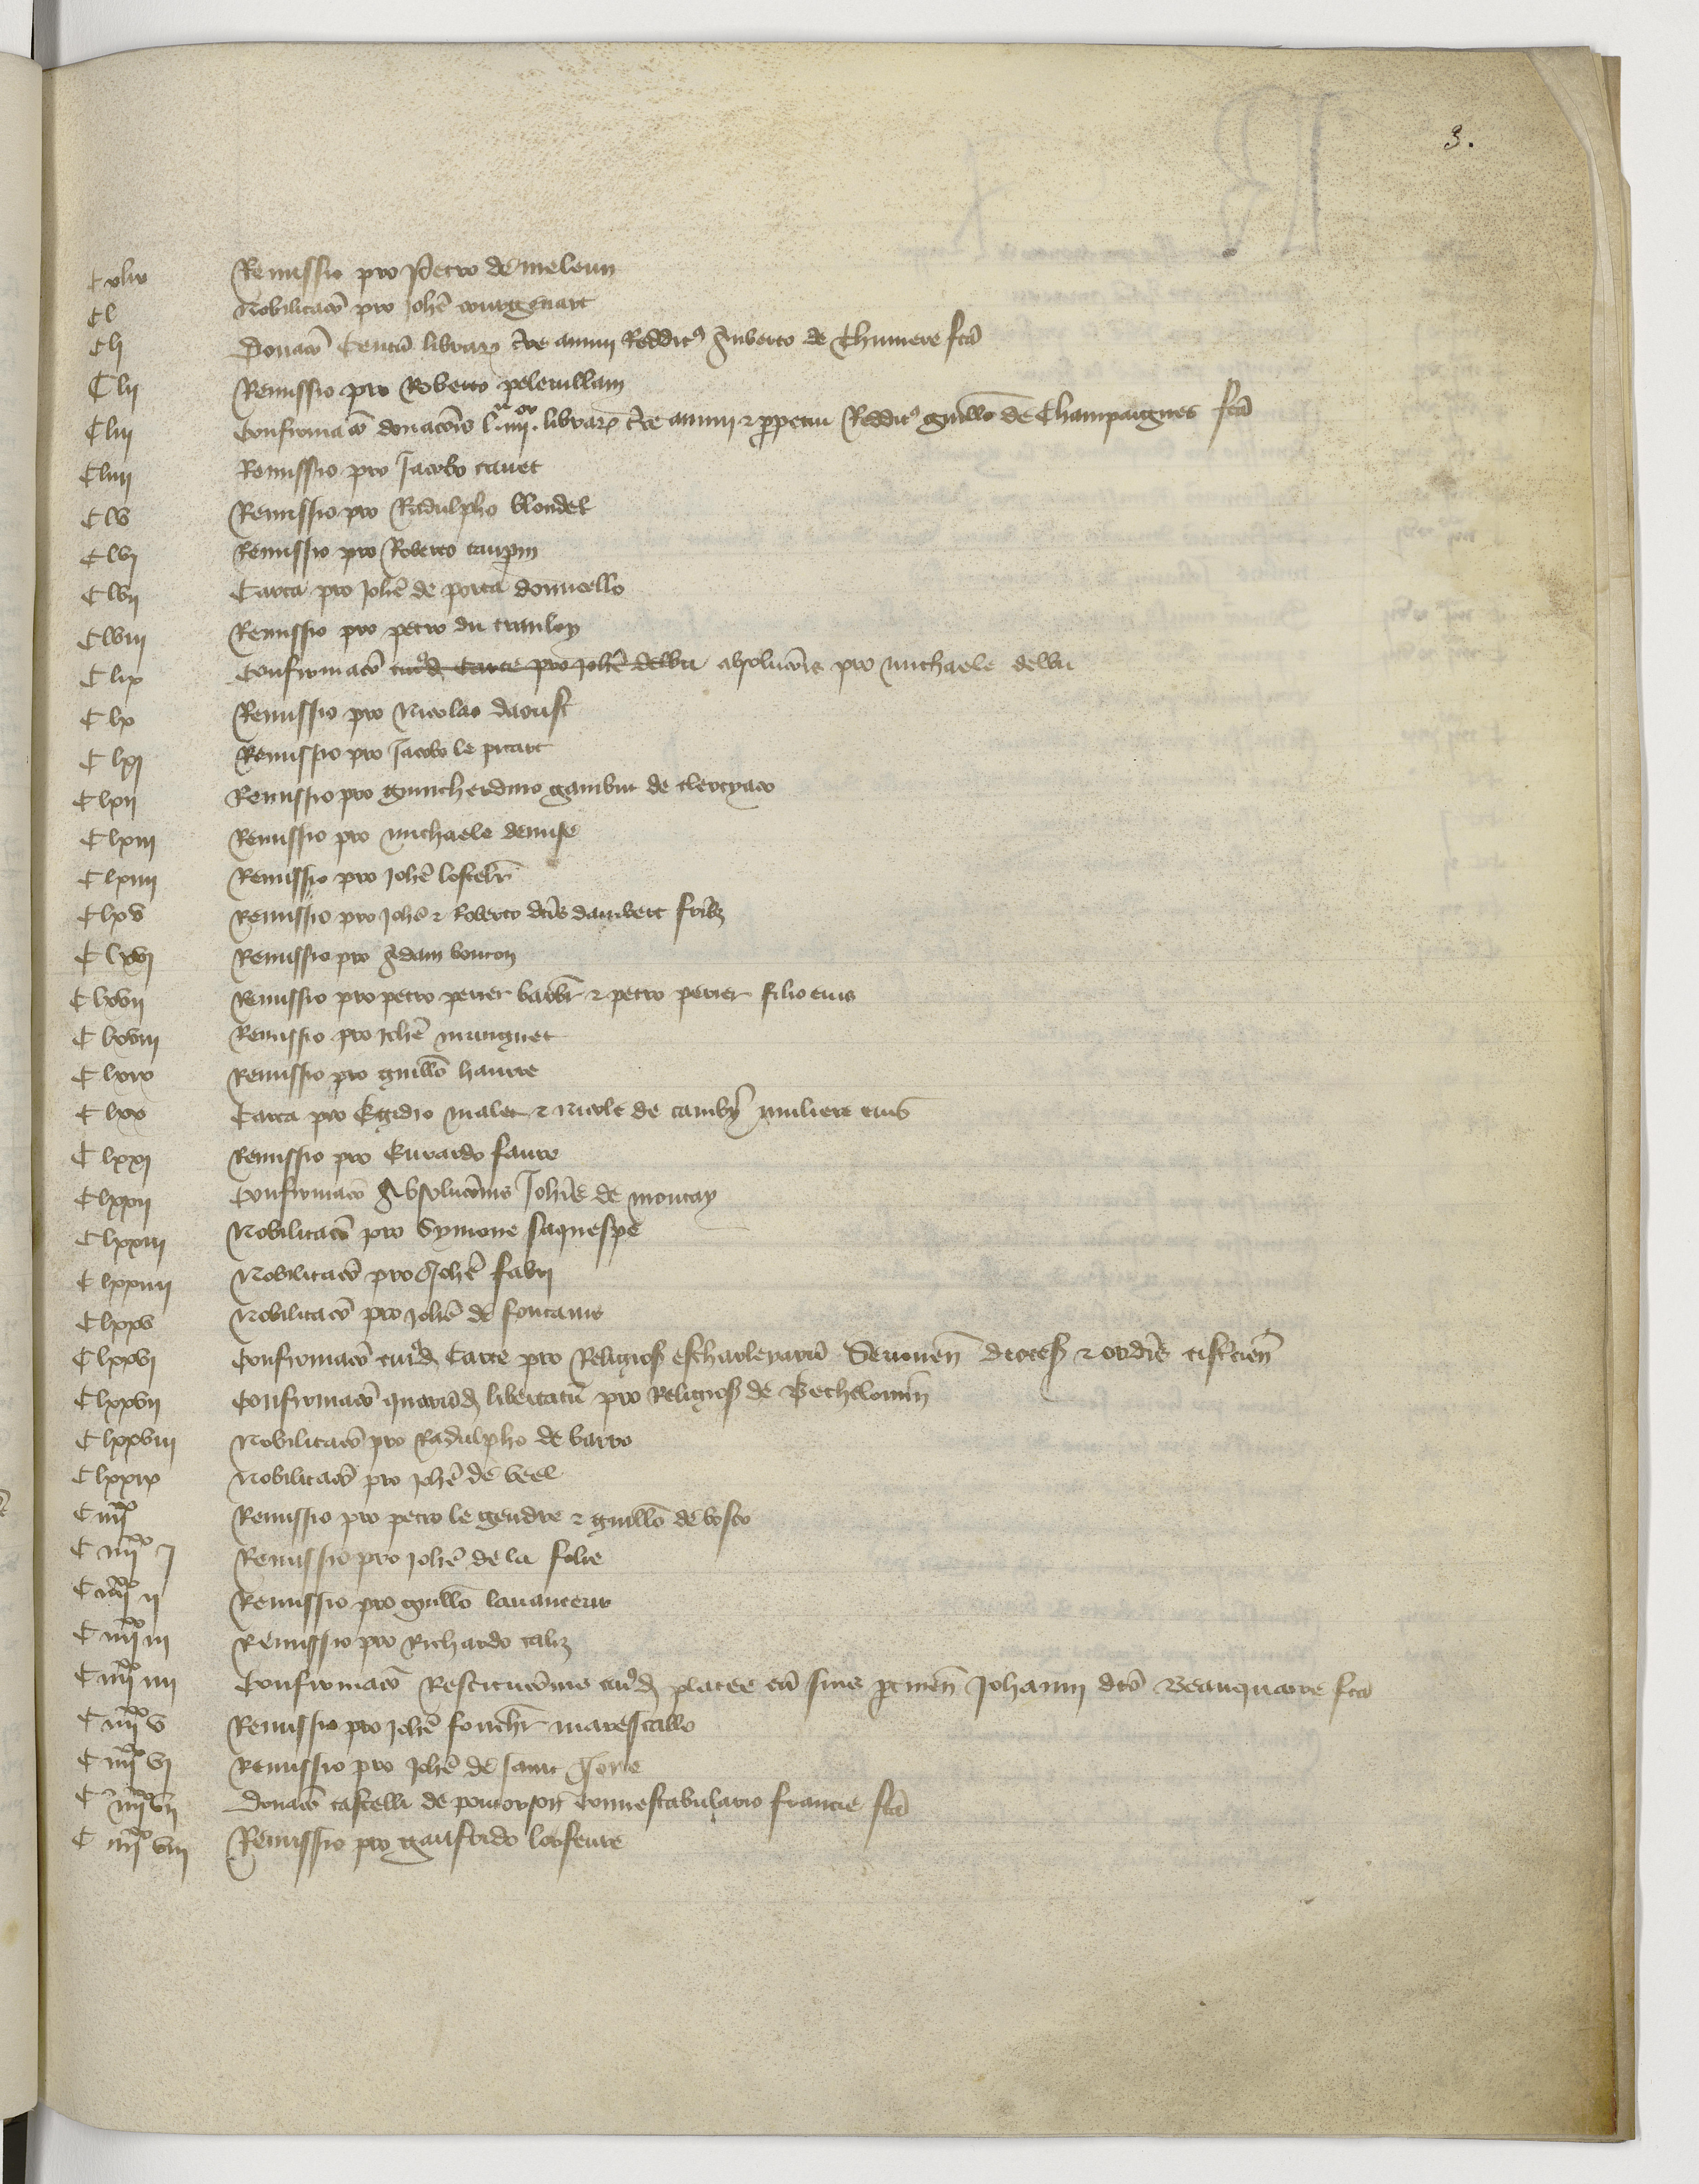 3.
Cxlix Remissio pro Petro de meleun
Cl Nobilitacō pro Johē courgenart
Clj Donacō Centū librarꝫ t̄re annui Redditꝰ Imberto de Thumere fcā
Clij Remissio pro Roberto pelerillam
Cliij Confirmacō donacōis librarꝫ t̄re annui ⁊ ꝑpetui Redditꝰ guillō de Champaignes fcā
Cliiij Remissio pro Jacobo cauet
Clv Remissio pro Radulpho blondel
Clvj Remissio pro Roberto taupin
Clvij Carta pro Johē de porta domicello
Clviij Remissio pro petro du tranloy
Clix Confirmacō cuiꝰd carte pro Johē delbu absolucōis pro michaele delbu
Clx Remissio pro Nicolao daoust
Clxj Remissio pro Jacobo le picart
Clxij Remissio pro guicherdino gambin de clercyaco
Clxiij Remissio pro michaele denise
Clxiiij Remissio pro Johē lostelr̄
Clxv Remissio pro Johe ⁊ Roberto dcīs dambert fribꝫ
Clxvj Remissio pro Adam bouton
Clxvij Remissio pro petro perier barbr̄ ⁊ petro perier filio eius
Clxviij Remissio pro Johē mauguet
Clxix Remissio pro guillō haurre
Clxx Carta pro Egidio malet ⁊ Nicole de camby muliere eius
Clxxj Remissio pro Euvardo faure
Clxxij Confirmacō Absolucōnis Johīs de moncay
Clxxiij Nobilitacō pro Symone saquespe
Clxxiiij Nobilitacō pro Johē fabrj
Clxxv Nobilitacō pro Johē de fontanis
Clxxvj Confirmacō cuiꝰd Carte pro Religios escharleyarū Senonen̄ dioces ⁊ ordis cistcien̄
Clxxvij Confirmacō quarūd libertatū pro Religios de Bethelomin̄
Clxxviij Nobilitacō pro Radulpho de barro
Clxxix Nobilitacō pro Johē de veel
C iiijxx Remissio pro petro le gendre ⁊ guillō de bosco
C iiijxx j Remissio pro Johē de la folie
C iiijxx ij Remissio pro guillō lauanteur
C iiijxx iij Remissio pro Richardo caliz
C iiijxx iiij Confirmacō Restitucōnis cuiꝰd platee cū suis ptinen̄ Johanni dcō Beauquarre fcā
C iiijxx v Remissio pro Johē fouchr̄ marescallo
C iiijxx vj Remissio pro Johē de saint Jorre
C iiijxx vij Donacō castelli de pontorson Connestabulario francie fcā
C iiijxx viij Remissio pro gaufrido lorfeure